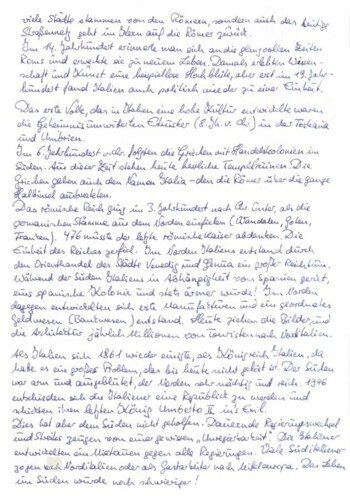 viele Städte stammen von den Römern, sondern auch das heutige
Straßennetz geht im Kern auf die Römer zurück.
Im 14. Jahrhundert erinnerte man sich an die glanzvollen Zeiten
Roms und erweckte sie zu neuem Leben. Damals erlebten Wissen-
schaft und Kunst eine beispiellose Hochblüte, aber erst im 19. Jahr-
hundert fand Italien auch politisch wieder zu einer Einheit.
Das erste Volk, das in Italien eine hohe Kultur entwickelte waren
die Geheimnisumwitterten Etrusker (8. Jh. v. Chr.) in der Toskana
und Umbrien.
Im 6. Jahrhundert v. Chr. folgten die Griechen mit Handelskolonien im
Süden. Aus dieser Zeit stehen heute herrliche Tempelruinen. Die
Griechen gaben auch den Namen Italia - den die Römer über die ganze
Halbinsel ausbreiteten.
Das römische Reich ging im 3. Jahrhundert nach Chr. unter, als die
germanischen Stämme aus dem Norden einfielen (Wandalen, Goten,
Franken). 476 musste der letzte römische Kaiser abdanken. Die
Einheit des Reiches zerfiel. Im Norden Italiens entstand durch
den Orienthandel der Städte Venedig und Genua ein großer Reichtum.
Während der Süden Italiens in Abhängigkeit von Spanien geriet,
eine spanische Kolonie und stets ärmer wurde! Im Norden
dagegen entwickelten sich erste Manufakturen und ein geordnetes
Geldwesen (Bankwesen) entstand. Heute ziehen die Bilder und
die Architektur jährlich Millionen von Touristen nach Norditalien.
Als Italien sich 1861 wieder einigte, als Königreich Italien, da
habe es ein großes Problem, das bis heute nicht gelöst ist. Der Süden
war arm und ausgeblutet, der Norden sehr mächtig und reich. 1946
entschieden sich die Italiener eine Republik zu werden und
schickten ihren letzten König Umberto II ins Exil.
Dies hat aber dem Süden nicht geholfen. Dauernde Regierungswechsel
und Streiks zeugen von einer gewissen „Unregierbarkeit". Die Italiener
entwickelten ein Misstrauen gegen alle Regierungen. Viele Süditaliener
zogen nach Norditalien oder als Gastarbeiter nach Mitteleuropa. Das Leben
im Süden wurde noch schwieriger!